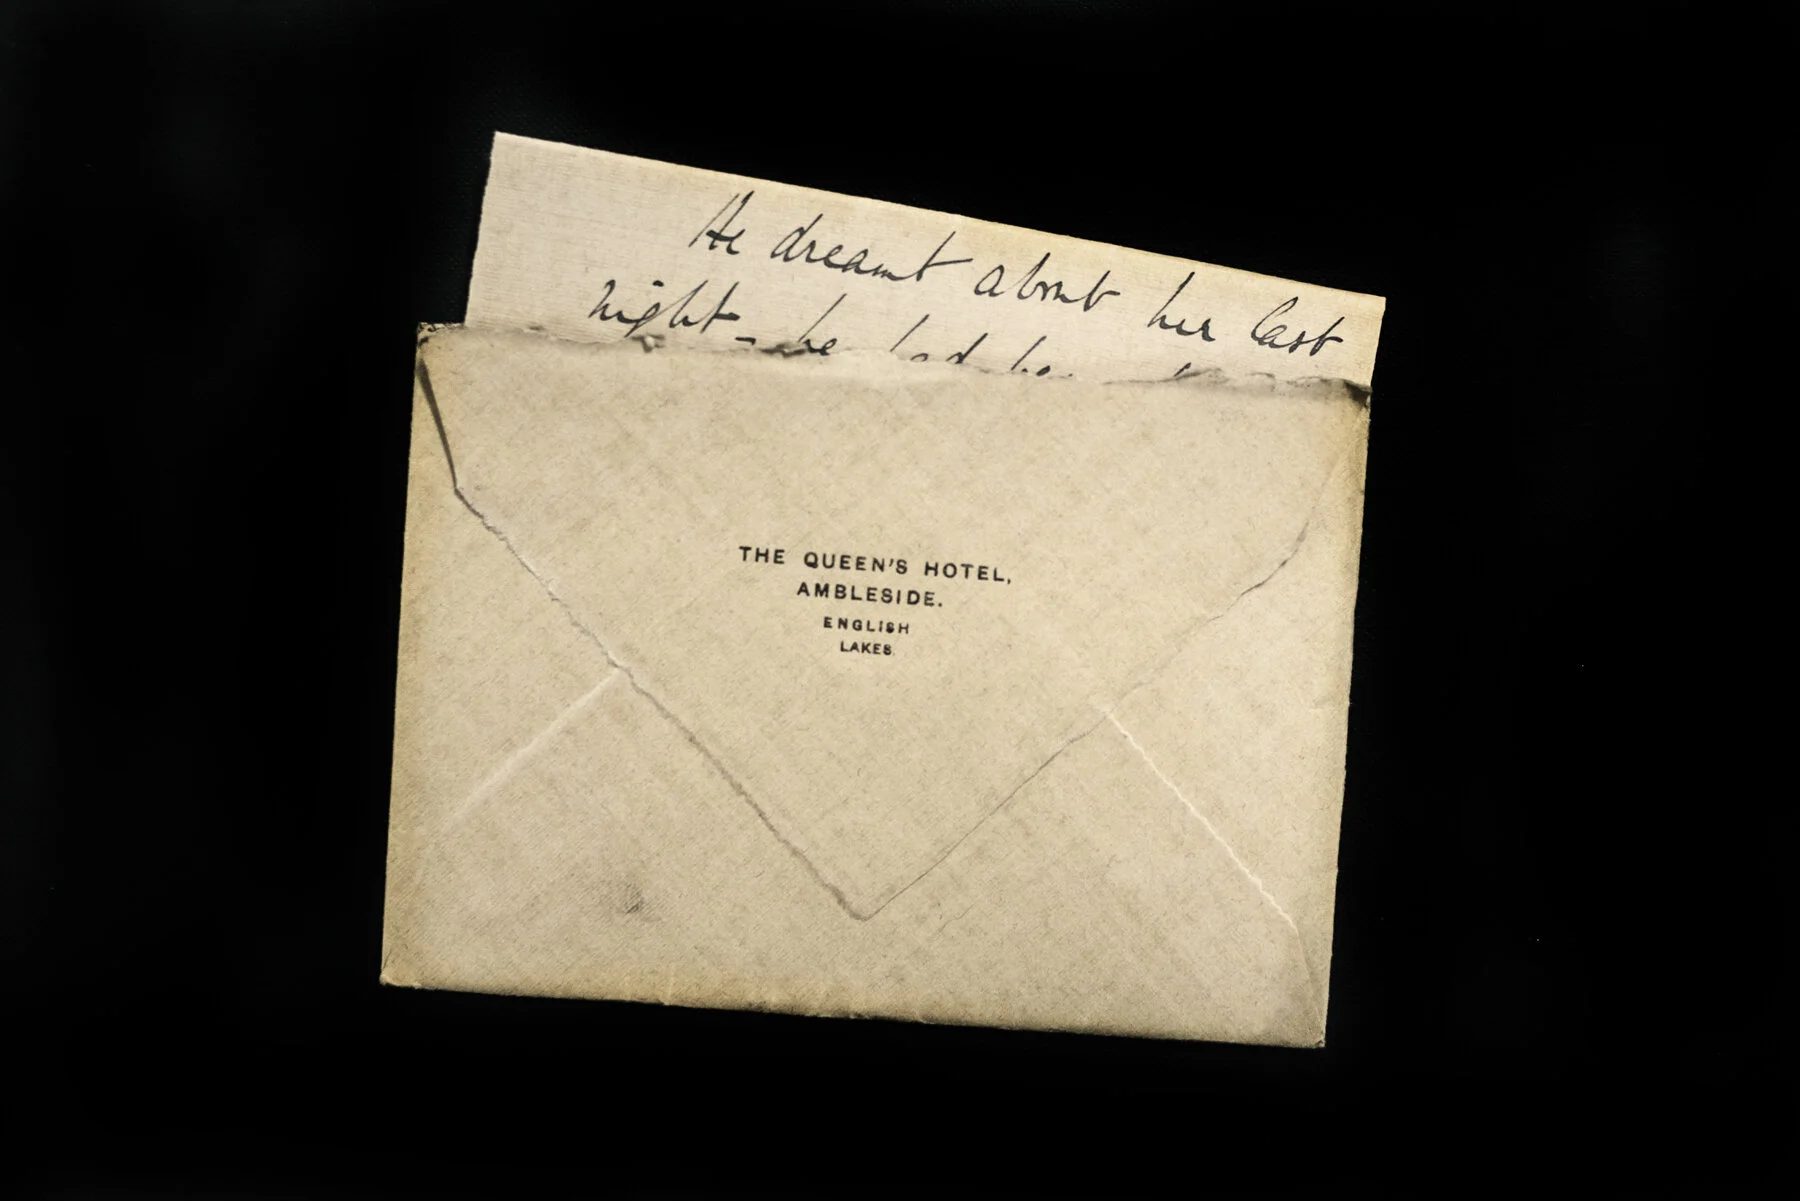 He dreamt about her last
night - he had
THE QUEEN'S HOTEL,
AMBLESIDE.
ENGLISH
LAKES.